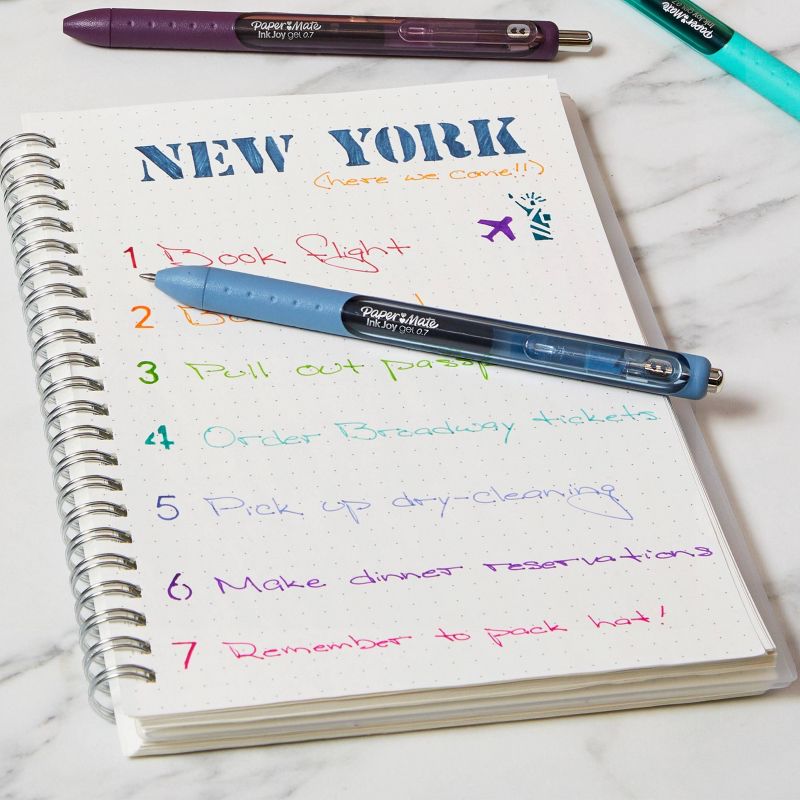 Paper Mate
InkJoy gel 0.7
Paper Mate
InkJoy gel 0.7
NEW YORK
(here we come!!)
1 Book flight
2
3 Pull out passp
Paper Mate
InkJoy gel 0.7
4 Order Broadway tickets
5 Pick up dry-cleaning
6 Make dinner reservations
7 Remember to pack hat!